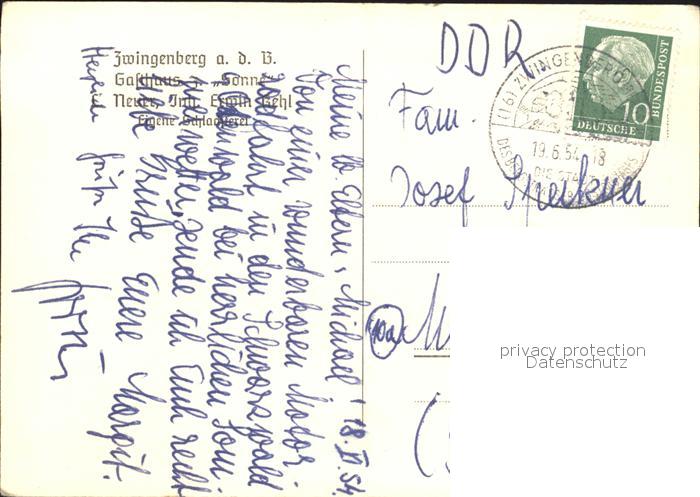 Zwingenberg a. d. B.
Gasthaus z. „Sonne“
Neuer Inh. Erwin Gehl
Eigene Schlachterei
Meine lb. Eltern, Michael! 18. VI. 54.
Von einer wunderbaren Motor-
radfahrt in den Schwarzwald
Odenwald bei herrlichen Som-
merwetter, sende ich Euch recht
liebe Grüße Euere Margit.
Herzliche Grüße Ihr
DDR
Fam.
Josef
10a
(16) ZWINGENBERG
19.6.54.-18
DEUTSCHE
BUNDESPOST
10
privacy protection
Datenschutz